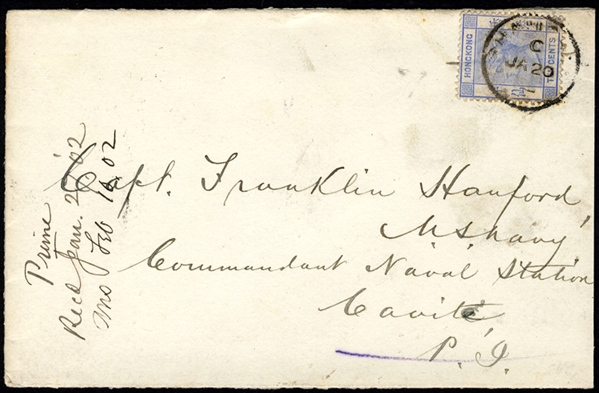 HONGKONG
TEN CENTS
C
JA 20
Capt. Franklin Hanford
U.S. Navy
Commandant Naval Station
Cavite
P.I.
Prime
Recd Jan. 26 02
Ans Feb 16 02